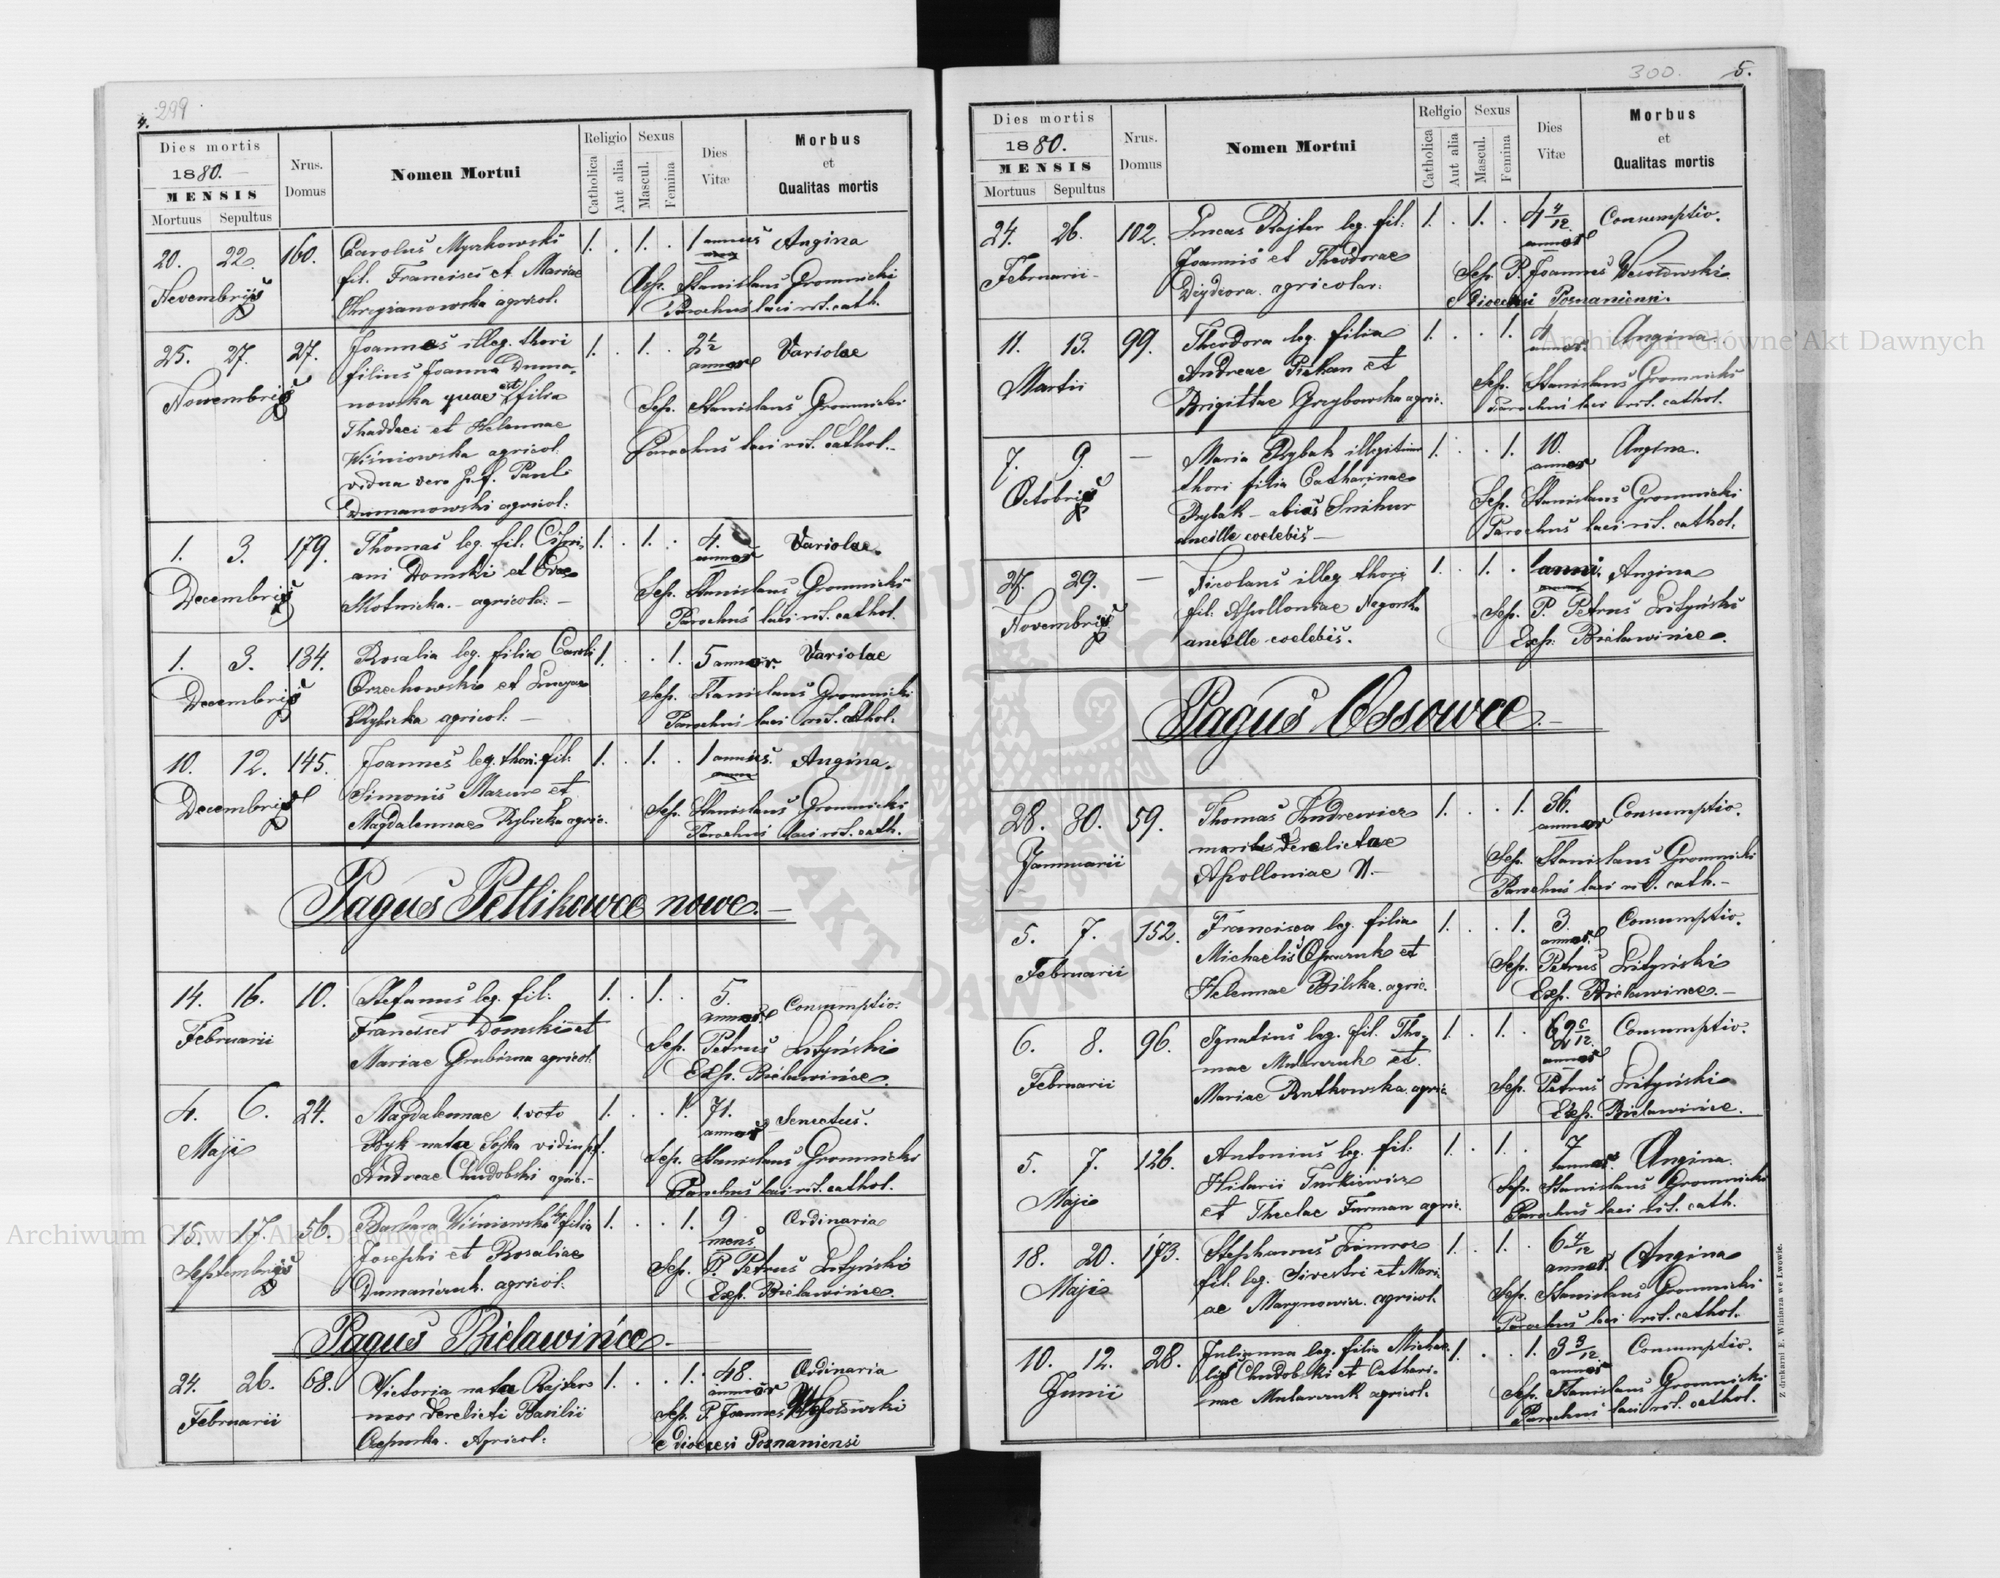 299
4.
Dies mortis
1880.
MENSIS
Mortuus Sepultus
Nrus. Domus
Nomen Mortui
Religio
Catholica
Aut alia
Sexus
Mascul.
Femina
Dies Vitæ
Morbus
et
Qualitas mortis
20. 22. 160. Carolus Myszkowski 1. . 1. . 1 annus Angina
Novembris fil. Francisci et Mariae Sep. Stanislaus Gromnicki
agricol. Parochus loci rit. cath.
25. 27. 27. Joannes illeg. thori 1. . 1. . 2½ annor Variolae
Novembris filius Joanna Duma-
nowska quae est filia Sep. Stanislaus Gromnicki
Thaddaei et Helennae Parochus loci rit. cathol.
Wiśniowska agricol.
vidua vero p. f. Pauli
Dumanowski agricol:
1. 3. 179. Thomas leg. fil. Cipri- 1. . 1. . 4. annor Variolae.
Decembris ani Domski et Evae Sep. Stanislaus Gromnicki
Słotnicka. agricola. Parochus loci rit. cathol.
1. 3. 134. Rosalia leg. filia Caroli 1. . . 1. 5 annor. Variolae
Decembris Orzechowski et Sep. Stanislaus Gromnicki
Rybicka agricol: Parochus loci rit. cathol.
10. 12. 145. Joannes leg. thori fil: 1. . 1. . 1 annus. Angina.
Decembris Simonis Mazur et Sep. Stanislaus Gromnicki
Magdalennae Rybicka agric. Parochus loci rit. cath.
Pagus Petlikowce nowe.
14. 16. 10. Stefanus leg. fil: 1. . 1. . 5. annor. Consumptio.
Februarii Francisci Domski et Sep. Petrus Lityński
Mariae Grubizna agricol: Exp. Bielawińce.
4. 6. 24. Magdalennae 1. voto 1. . . 1. 71. annor Senectus.
Maji Byk nata Sojka vidua p. f. Sep. Stanislaus Gromnicki
Andreae Chudobski agric. Parochus loci rit. cathol.
15. 17. 56. Barbara Wiśniowski leg. filia 1. . . 1. 9 mens Ordinaria
Septembris Josephi et Rosaliae Sep. P. Petrus Lityński
Dumańczuk. agricol. Exp. Bielawińce.
Pagus Bielawińce
24. 26. 68. Victoria nata Rajter 1. . . 1. 48. annor Ordinaria
Februarii uxor derelicti Basilii Sep. P. Joannes Wesołowski
Agricol: e dioecesi Poznaniensi
300. 5.
Dies mortis
1880.
MENSIS
Mortuus Sepultus
Nrus. Domus
Nomen Mortui
Religio
Catholica
Aut alia
Sexus
Mascul.
Femina
Dies Vitæ
Morbus
et
Qualitas mortis
24. 26. 102. Lucas Rajter leg. fil: 1. . 1. . 4 4/12 annor Consumptio.
Februarii Joannis et Theodorae Sep. P. Joannes Wesołowski
Dzydzora. agricolar. e dioecesi Poznaniensi.
11. 13. 99. Theodora leg. filia 1. . . 1. 4 annor. Angina
Martii Andreae Piehan et Sep. Stanislaus Gromnicki
Brigittae Grzybowska agric. Parochus loci rit. cathol.
7. 9. — Maria Rybak illegitimi 1. . . 1. 10. annor Angina.
Octobris thori filia Catharinae Sep. Stanislaus Gromnicki
Rybak - alias Snihur Parochus loci rit. cathol.
ancillae coelebis
27. 29. — Nicolaus illeg. thori 1. . 1. . 1 anni. Angina
Novembris fil: Apolloniae Nogorska Sep. P. Petrus Lityński
ancillae coelebis. Exp. Bielawińce.
Pagus Ossowce.
28. 30. 59. Thomas Andrewicz 1. . . 1. 36. annor Consumptio.
Januarii maritus derelictae Sep. Stanislaus Gromnicki
Apolloniae N. Parochus loci rit. cath.
5. 7. 152. Francisca leg. filia 1. . . 1. 3. annor. Consumptio.
Februarii Michaelis et Sep. Petrus Lityński
Helennae Bilska. agric. Exp. Bielawińce.
6. 8. 96. Ignatius leg. fil. Tho- 1. . 1. . annor Consumptio.
Februarii mae Mularczuk et Sep. Petrus Lityński
Mariae Rutkowska agric. Exp. Bielawińce.
5. 7. 126. Antonius leg. fil: 1. . 1. . 7 annor. Angina.
Maji Hilarii Turkiewicz Sep. Stanislaus Gromnicki
et Theclae Furman agric. Parochus loci rit. cath.
18. 20. 173. Stephanus 1. . 1. . 6 4/12 annor. Angina
Maji fil. leg. Sivestri et Mari- Sep. Stanislaus Gromnicki
ae Marynowicz. agricol. Parochus loci rit. cathol.
10. 12. 28. Julianna leg. filia Michae- 1. . . 1. 3 3/12 annor Consumptio.
Junii lis Chudobski et Cathari- Sep. Stanislaus Gromnicki
nae Mularczuk agricol. Parochus loci rit. cathol.
Z drukarni E. Winiarza we Lwowie.
Archiwum Główne Akt Dawnych
Archiwum Główne Akt Dawnych